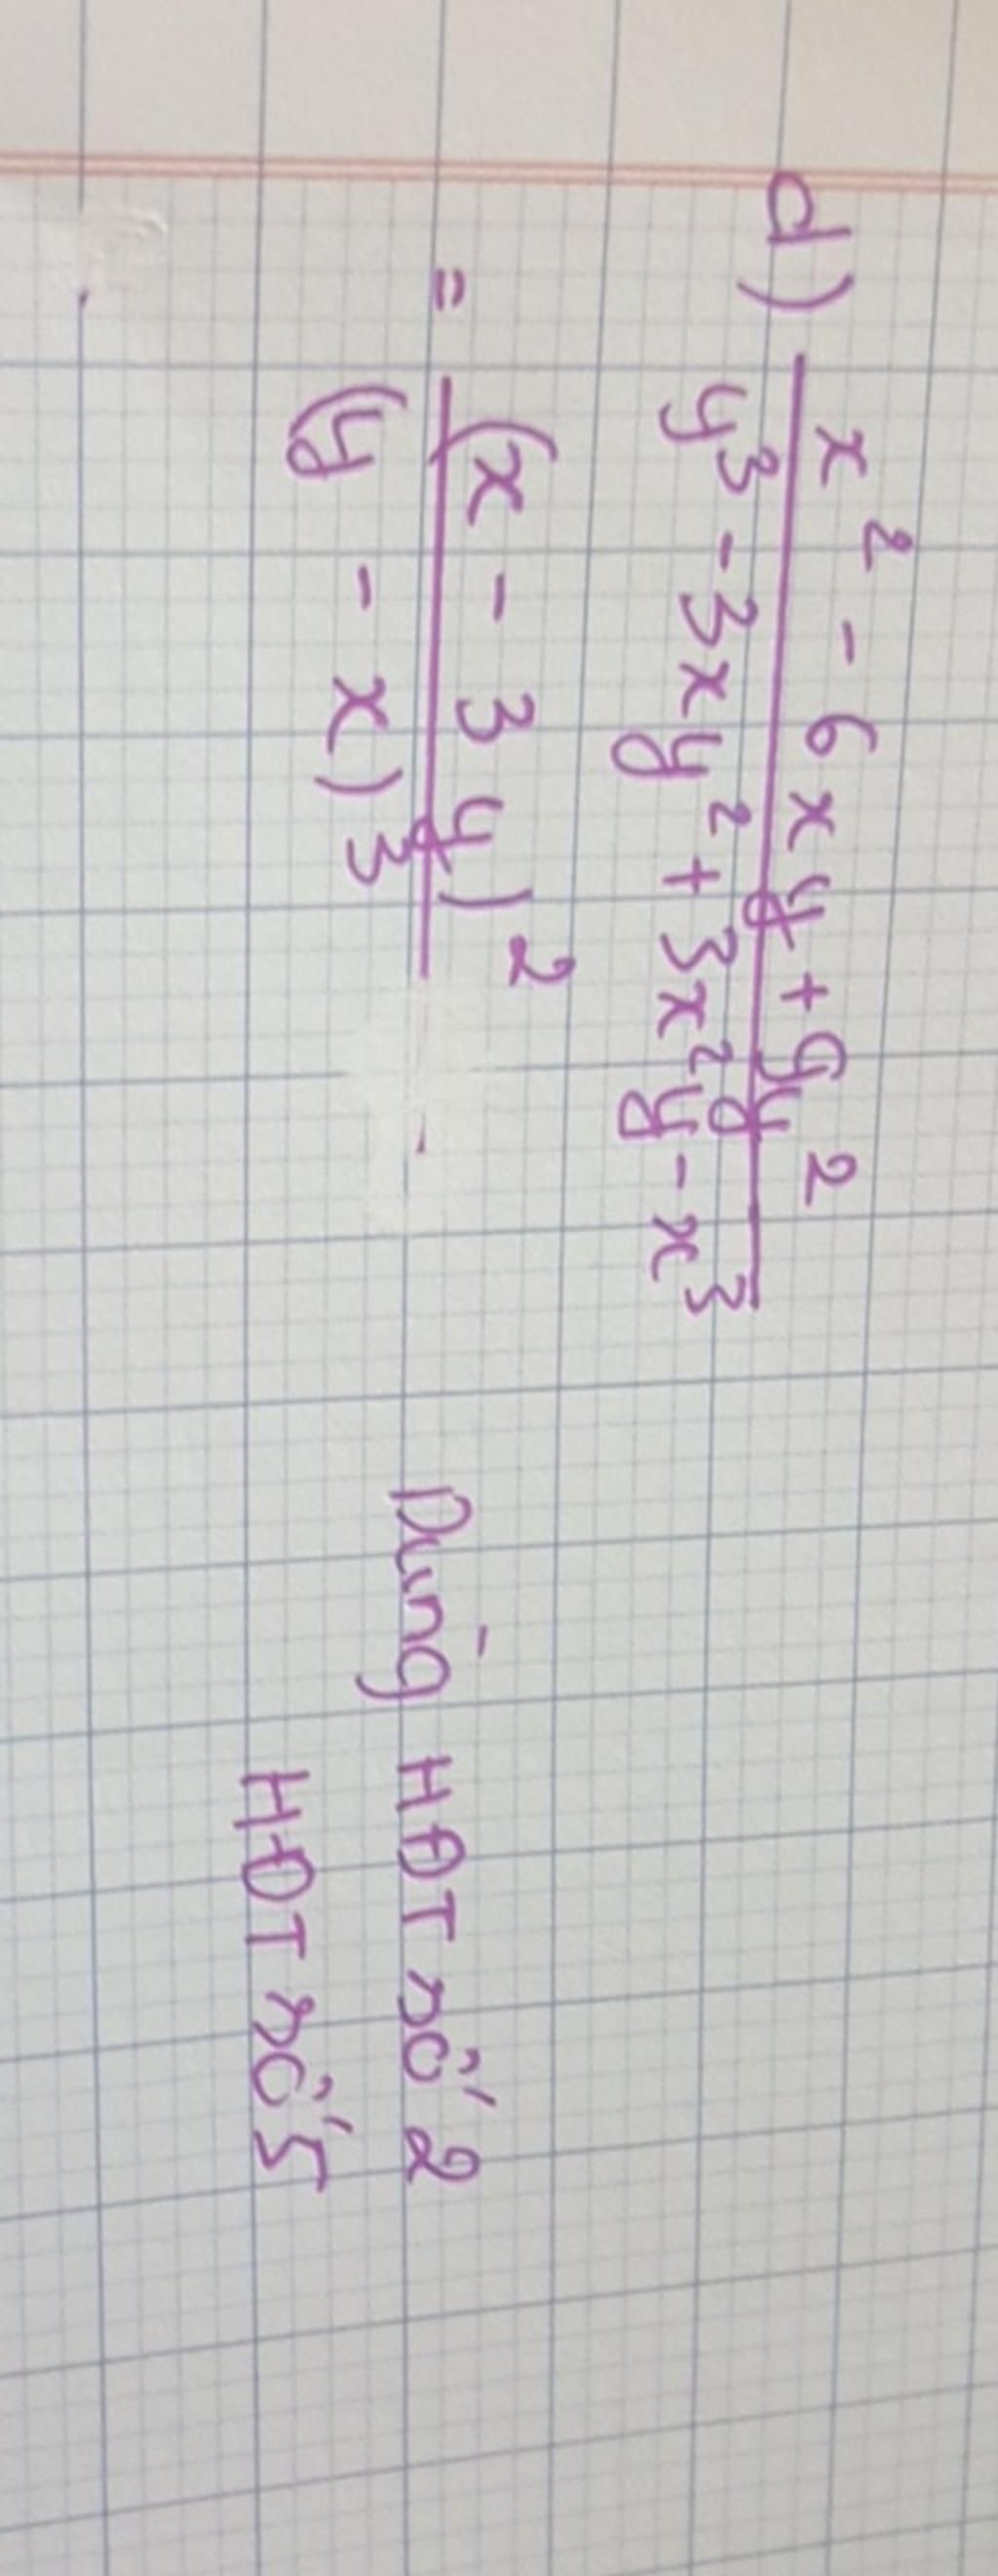 d) x² - 6xy + 9y²
y³ - 3xy² + 3x²y - x³
= (x - 3y)²
(y - x)³
Dùng HĐT số 2
HĐT số 5